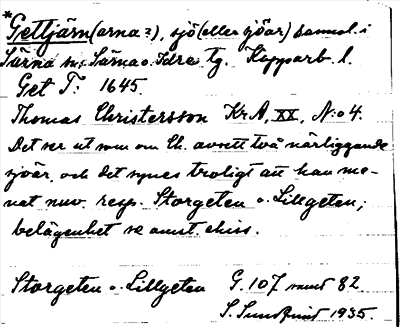 *Gettjärn (arna?), sjö (eller sjöar) saml. i
Särna sn, Särna o. Idre tg. Kopparb. l.
Get T: 1645.
Thomas Christersson KrA, XX, N:o 4.
Det ser ut som om Ch. avsett två närliggande
sjöar, och det synes troligt att han me-
nat nuv. resp. Storgeten o. Lillgeten;
belägenhet se anst. skiss.
Storgeten o. Lillgeten G. 107 samt 82
S. Sundqvist 1935.